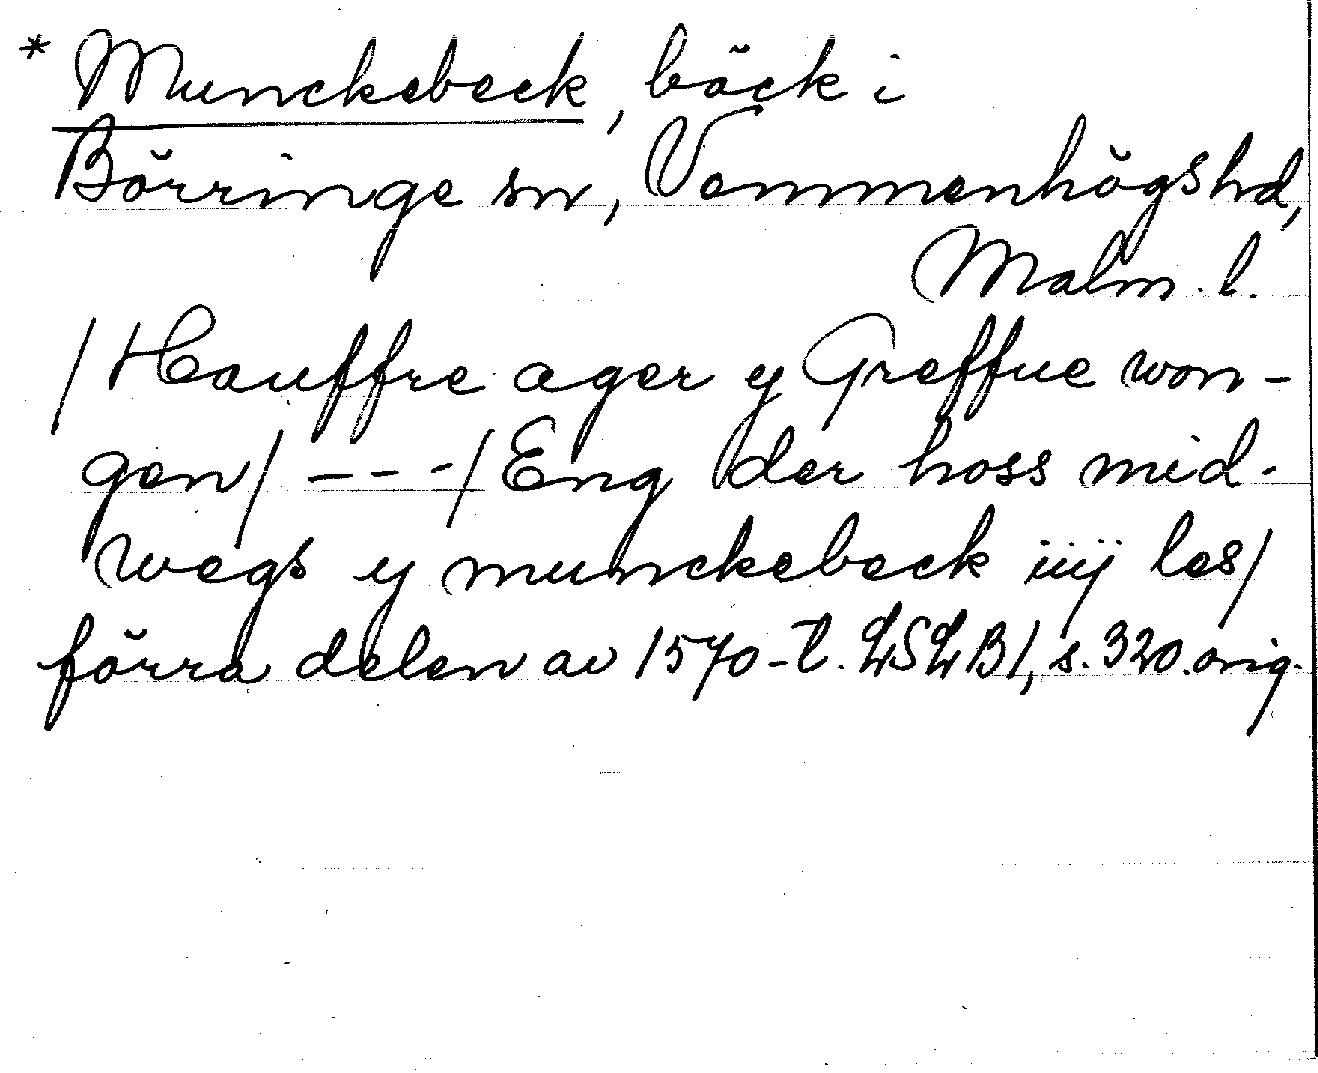 * Munckebeck, bäck i
Börringe sn, Vemmenhögs hd,
Malm. l.
/Hauffre ager y Greffue won-
gen/ ---/Eng der hoss mid-
wegs y munckebeck iiij les/
förra delen av 1570-t. LSLB1, s. 320. orig.